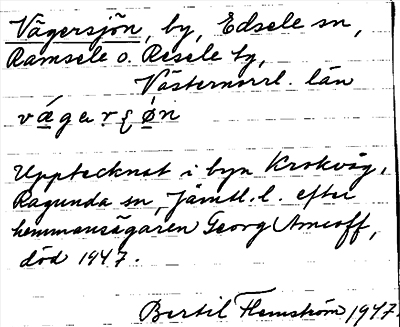 Vägersjön, by, Edsele sn,
Ramsele o. Resele tg,
Västernorrl. län
Upptecknat i byn Krokvåg,
Ragunda sn, Jämtl. l. efter
hemmansägaren Georg Amcoff,
död 1947.
Bertil Flemström 1947